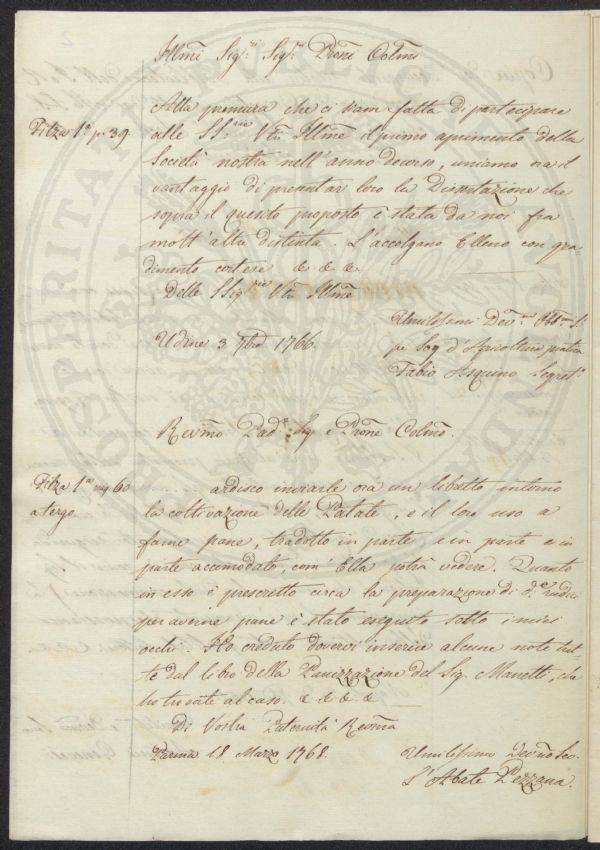 2
Illmi Sig.ri Sig.ri Proni Colmi
Filza 1a p. 39.
Alla premura che ci siam fatta di partecipare
alle SS.rie Vre Illme il primo aprimento della
Società nostra nell'anno decorso, uniamo ora il
vantaggio di presentar loro la Dissertazione che
sopra il quesito proposto è stata da noi fra
molt'altre distinta. L'accolgano Elleno con gra-
dimento cortese &. &. &.
Delle SSig.rie Vre Illme
Udine 3 7bre 1766.
Umilissimi Devmi Obbmi S.
pe' Sog. d'Agricoltura pratica
Fabio Asquino Segret.o
Revmo Pad.e Sig. e Prone Colmo.
Filza 1ma mg 60
a tergo.
ardisco inviarle ora un libretto intorno
la coltivazione delle Patate, e il loro uso a
farne pane, tradotto in parte e in parte e in
parte accomodato, com'Ella potrà vedere. Quanto
in esso è prescritto circa la preparazione di d.e radici
per averne pane è stato eseguito sotto i miei
occhi. Ho creduto dovervi inserire alcune note trat-
te dal libro della Panizzazione del Sig. Manetti, che
ho trovate al caso. &. &. &. &.
Di Vostra Paternità Revma
Parma 18 Marzo 1768.
Umilissimo Devmo Ser.
L'Abate Pezzana.